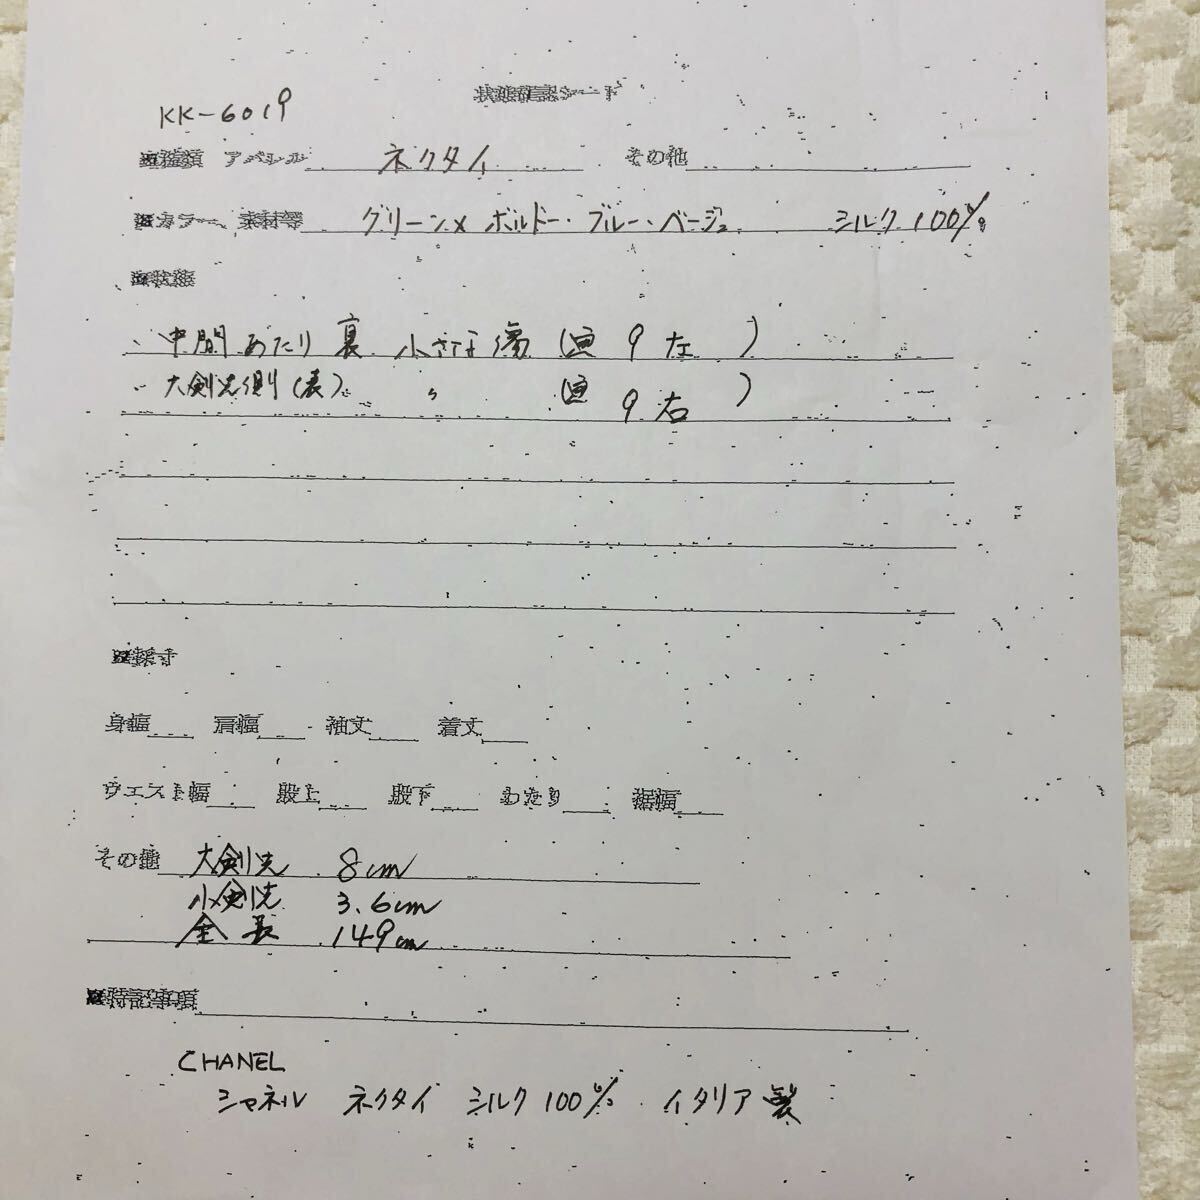 状態確認シート
KK-6019
■種類 アパレル ネクタイ その他
■カラー、素材等 グリーン×ボルドー・ブルー・ベージュ シルク100%
■状態
・中間あたり裏 小さな傷 (画 9 左 )
・大剣先側(表) 〃 (画 9 右 )
■採寸
身幅 肩幅 袖丈 着丈
ウエスト幅 股上 股下 わたり 裾幅
その他 大剣先 8cm
小剣先 3.6cm
全長 149cm
■特記事項
CHANEL
シャネル ネクタイ シルク100% イタリア製